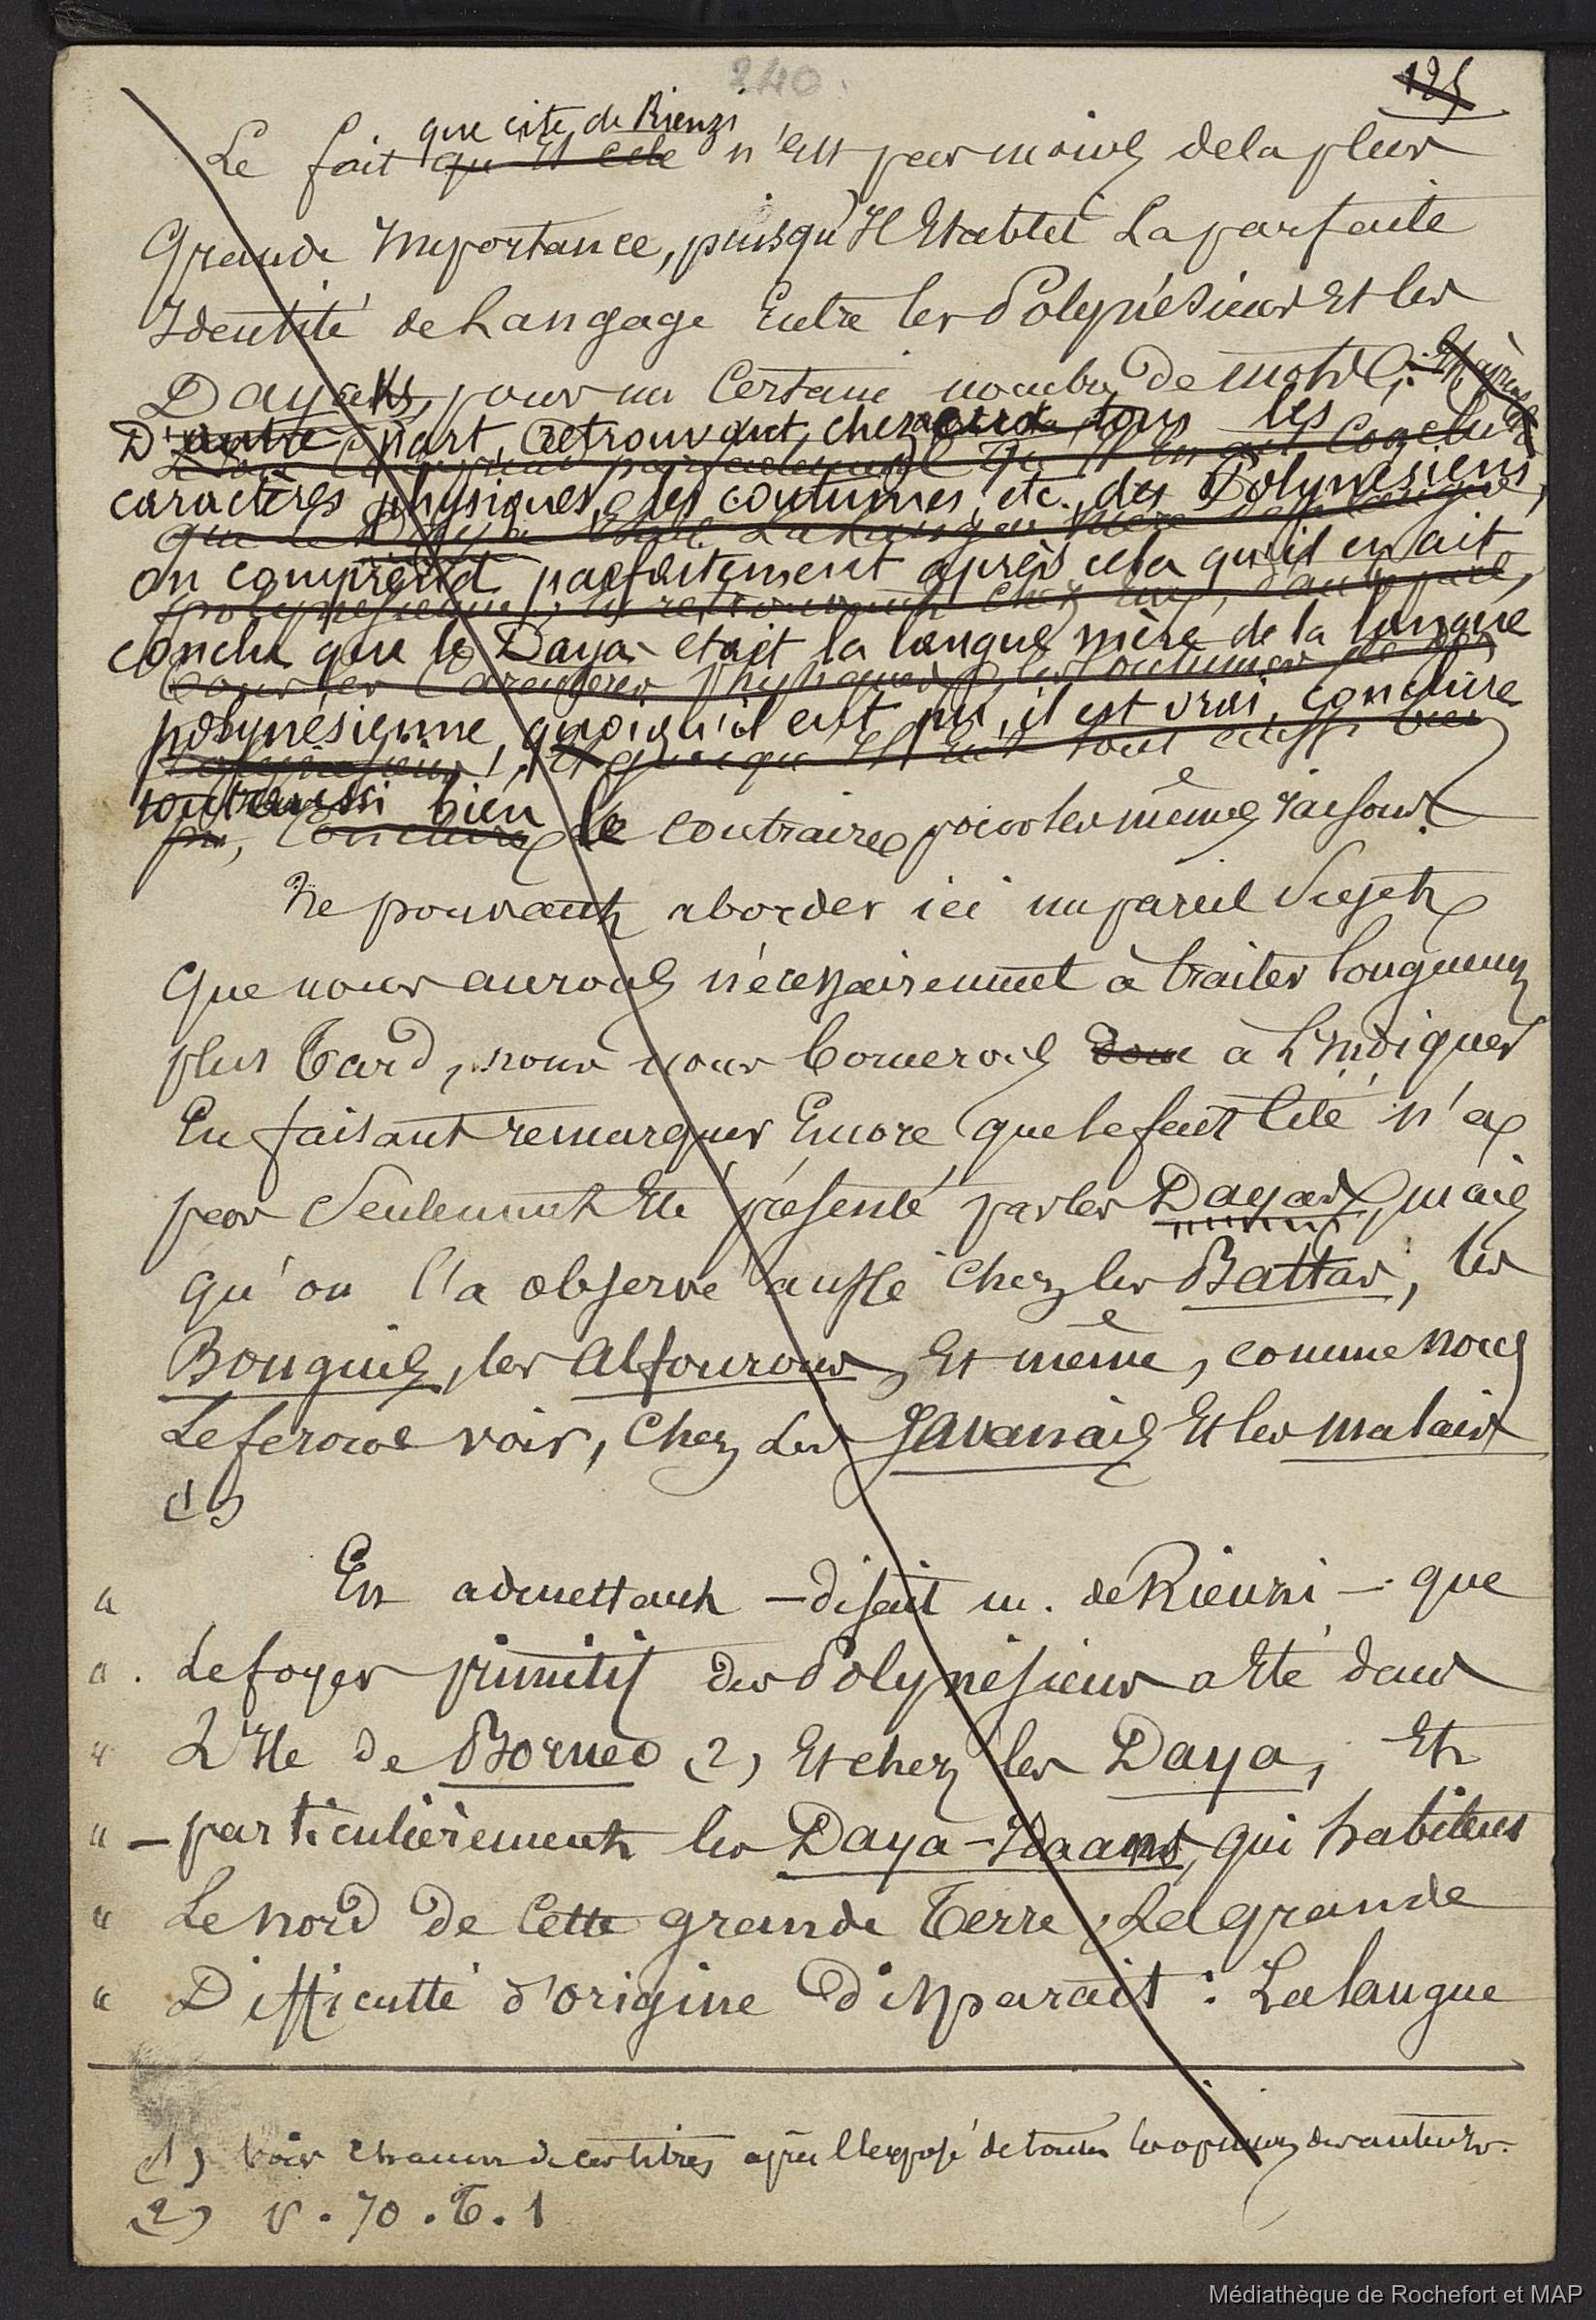 240.
125
que cite de Rienzi
Le fait qu'il cite n'est pas moins de la plus
Grande Importance, puisqu'Il Etablit La parfaite
Identité de Langage Entre les Polynésiens Et les
Dayaks, pour un Certain nombre de mots;
D'autre part, retrouvant, chez eux tous les
caractères physiques, les coutumes, etc., des Polynésiens,
on comprend parfaitement après cela qu'il en ait
conclu que le Daya était la langue mère de la langue
polynésienne, quoiqu'il eut pu, il est vrai, conclure
tout aussi bien
pu, Conclure le contraire pour les mêmes raisons.
Ne pouvant aborder ici un pareil Sujet
Que nous aurons nécessairement à traiter longuement
plus Tard, nous nous bornerons donc à L'Indiquer
En faisant remarquer Encore que le fait Cité n'a
pas Seulement Eté présenté par les Dayas, mais
qu'on l'a observé aussi chez les Battas, les
Bouguis, les Alfourous, Et même, comme nous
Le ferons voir, Chez Les Javanais Et les malais
(1)
" En admettant — disait m. de Rienzi — que
" Le foyer primitif des Polynésiens a Eté dans
" L'Ile de Borneo (2) Et chez les Daya, Et
" — particulièrement les Daya-Idaans, qui habitent
" Le nord de Cette grande Terre, La grande
" Difficulté d'origine disparait : La langue
(1) Voir chacun de ces titres après l'exposé de toutes les opinions des auteurs.
(2) v. 70. T. 1
Médiathèque de Rochefort et MAP